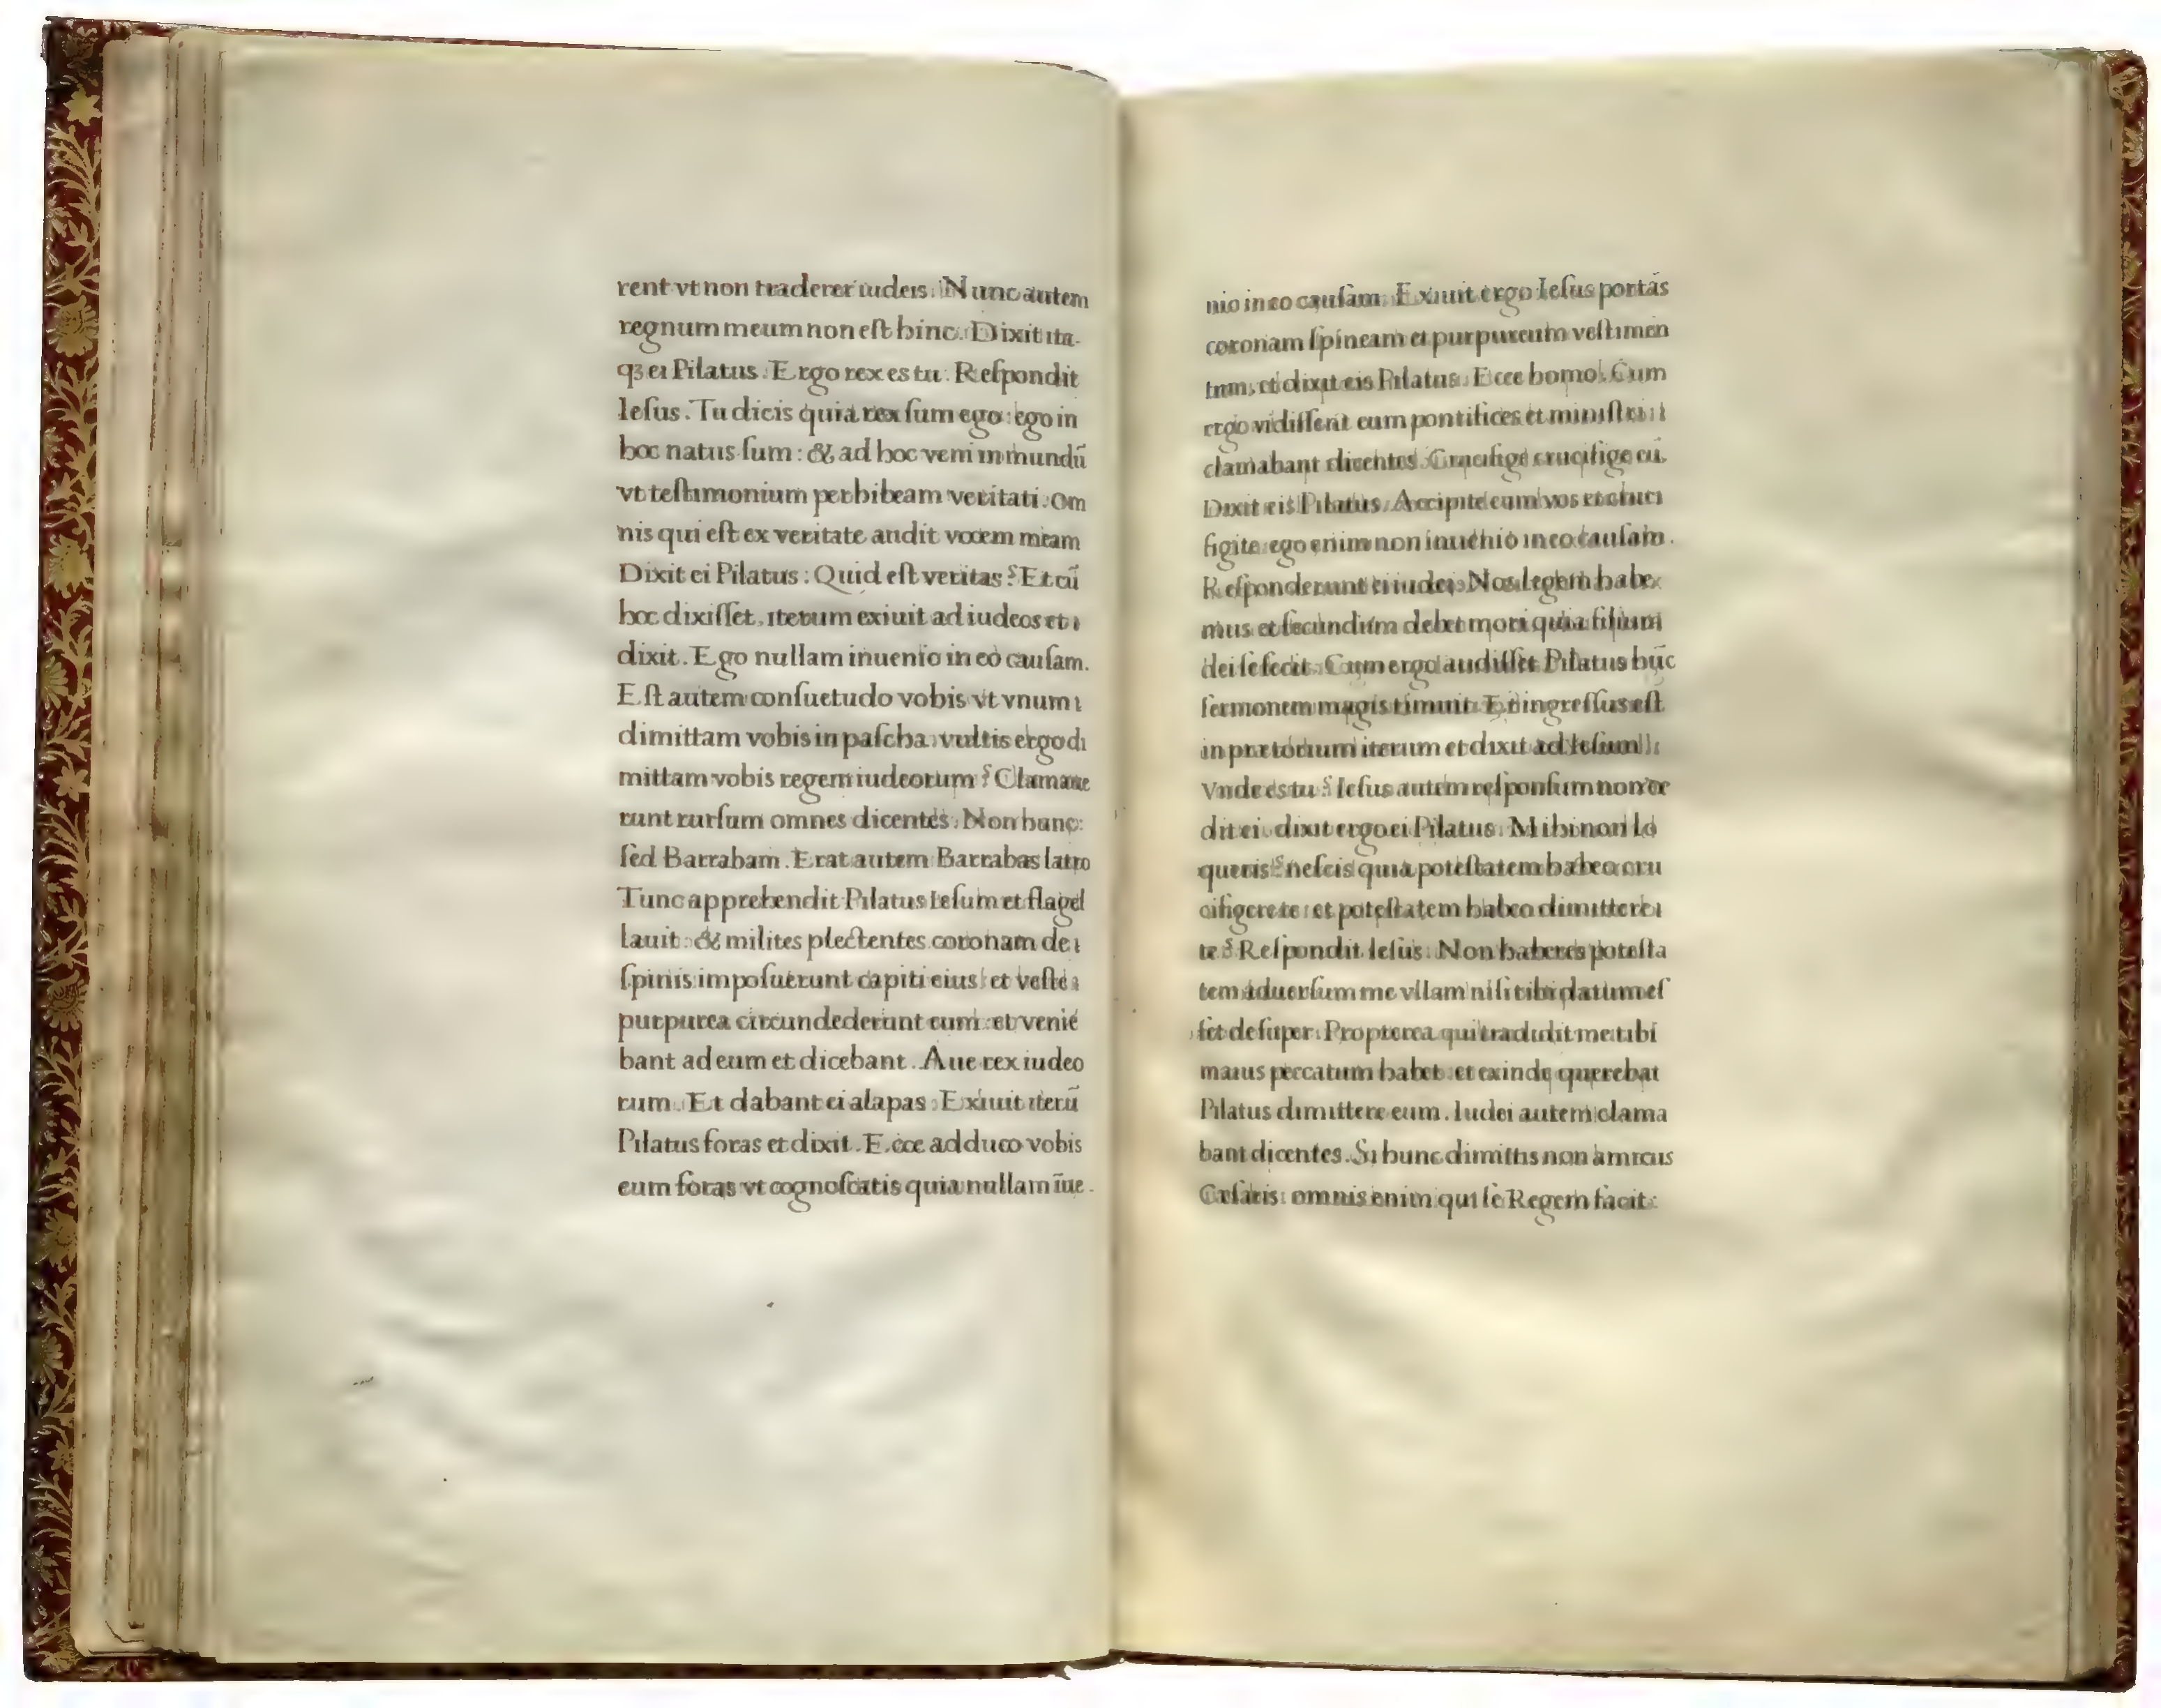 rent vt non traderer iudeis. Nunc autem
regnum meum non eſt hinc. Dixit ita-
qꝫ ei Pilatus. Ergo rex es tu. Reſpondit
Ieſus. Tu dicis quia rex ſum ego: ego in
hoc natus ſum: & ad hoc veni in mundū
vt teſtimonium perhibeam veritati. Om
nis qui eſt ex veritate audit vocem meam
Dixit ei Pilatus: Quid eſt veritas? Et cū
hoc dixiſſet, iterum exiuit ad iudeos et
dixit. Ego nullam inuenio in eo cauſam.
Eſt autem conſuetudo vobis vt vnum
dimittam vobis in paſcha. vultis ergo di
mittam vobis regem iudeorum? Clamaue
runt rurſum omnes dicentes. Non hunc:
ſed Barrabam. Erat autem Barrabas latro
Tunc apprehendit Pilatus Ieſum et flagel
lauit: & milites plectentes coronam de
ſpinis impoſuerunt capiti eius: et veſte
purpurea circundederunt eum: et venie
bant ad eum et dicebant. Aue rex iudeo
rum. Et dabant ei alapas. Exiuit iterū
Pilatus foras et dixit. Ecce adduco vobis
eum foras vt cognoſcatis quia nullam īue-
nio in eo cauſam. Exiuit ergo Ieſus portās
coronam ſpineam et purpureum veſtimen
tum, et dixit eis Pilatus. Ecce homo. Cum
ergo vidiſſent eum pontifices et miniſtri
clamabant dicentes. Crucifige crucifige eū.
Dixit eis Pilatus. Accipite eum vos et cruci
figite: ego enim non inuenio in eo cauſam.
Reſponderunt ei iudei. Nos legem habe
mus et ſecundum debet mori quia filium
dei ſe fecit. Cum ergo audiſſet Pilatus hūc
ſermonem magis timuit. Et ingreſſus eſt
in prætorium iterum et dixit ad Ieſum
Vnde es tu? Ieſus autem reſponſum non de
dit ei. dixit ergo ei Pilatus. Mihi non lo
queris? neſcis quia poteſtatem habeo cru
cifigere te: et poteſtatem habeo dimittere
te? Reſpondit Ieſus. Non haberes poteſta
tem aduerſum me vllam niſi tibi datum eſ
ſet deſuper. Propterea qui tradidit me tibi
maius peccatum habet: et exinde querebat
Pilatus dimittere eum. Iudei autem clama
bant dicentes. Si hunc dimittis non amicus
Cæſaris: omnis enim qui ſe Regem facit: